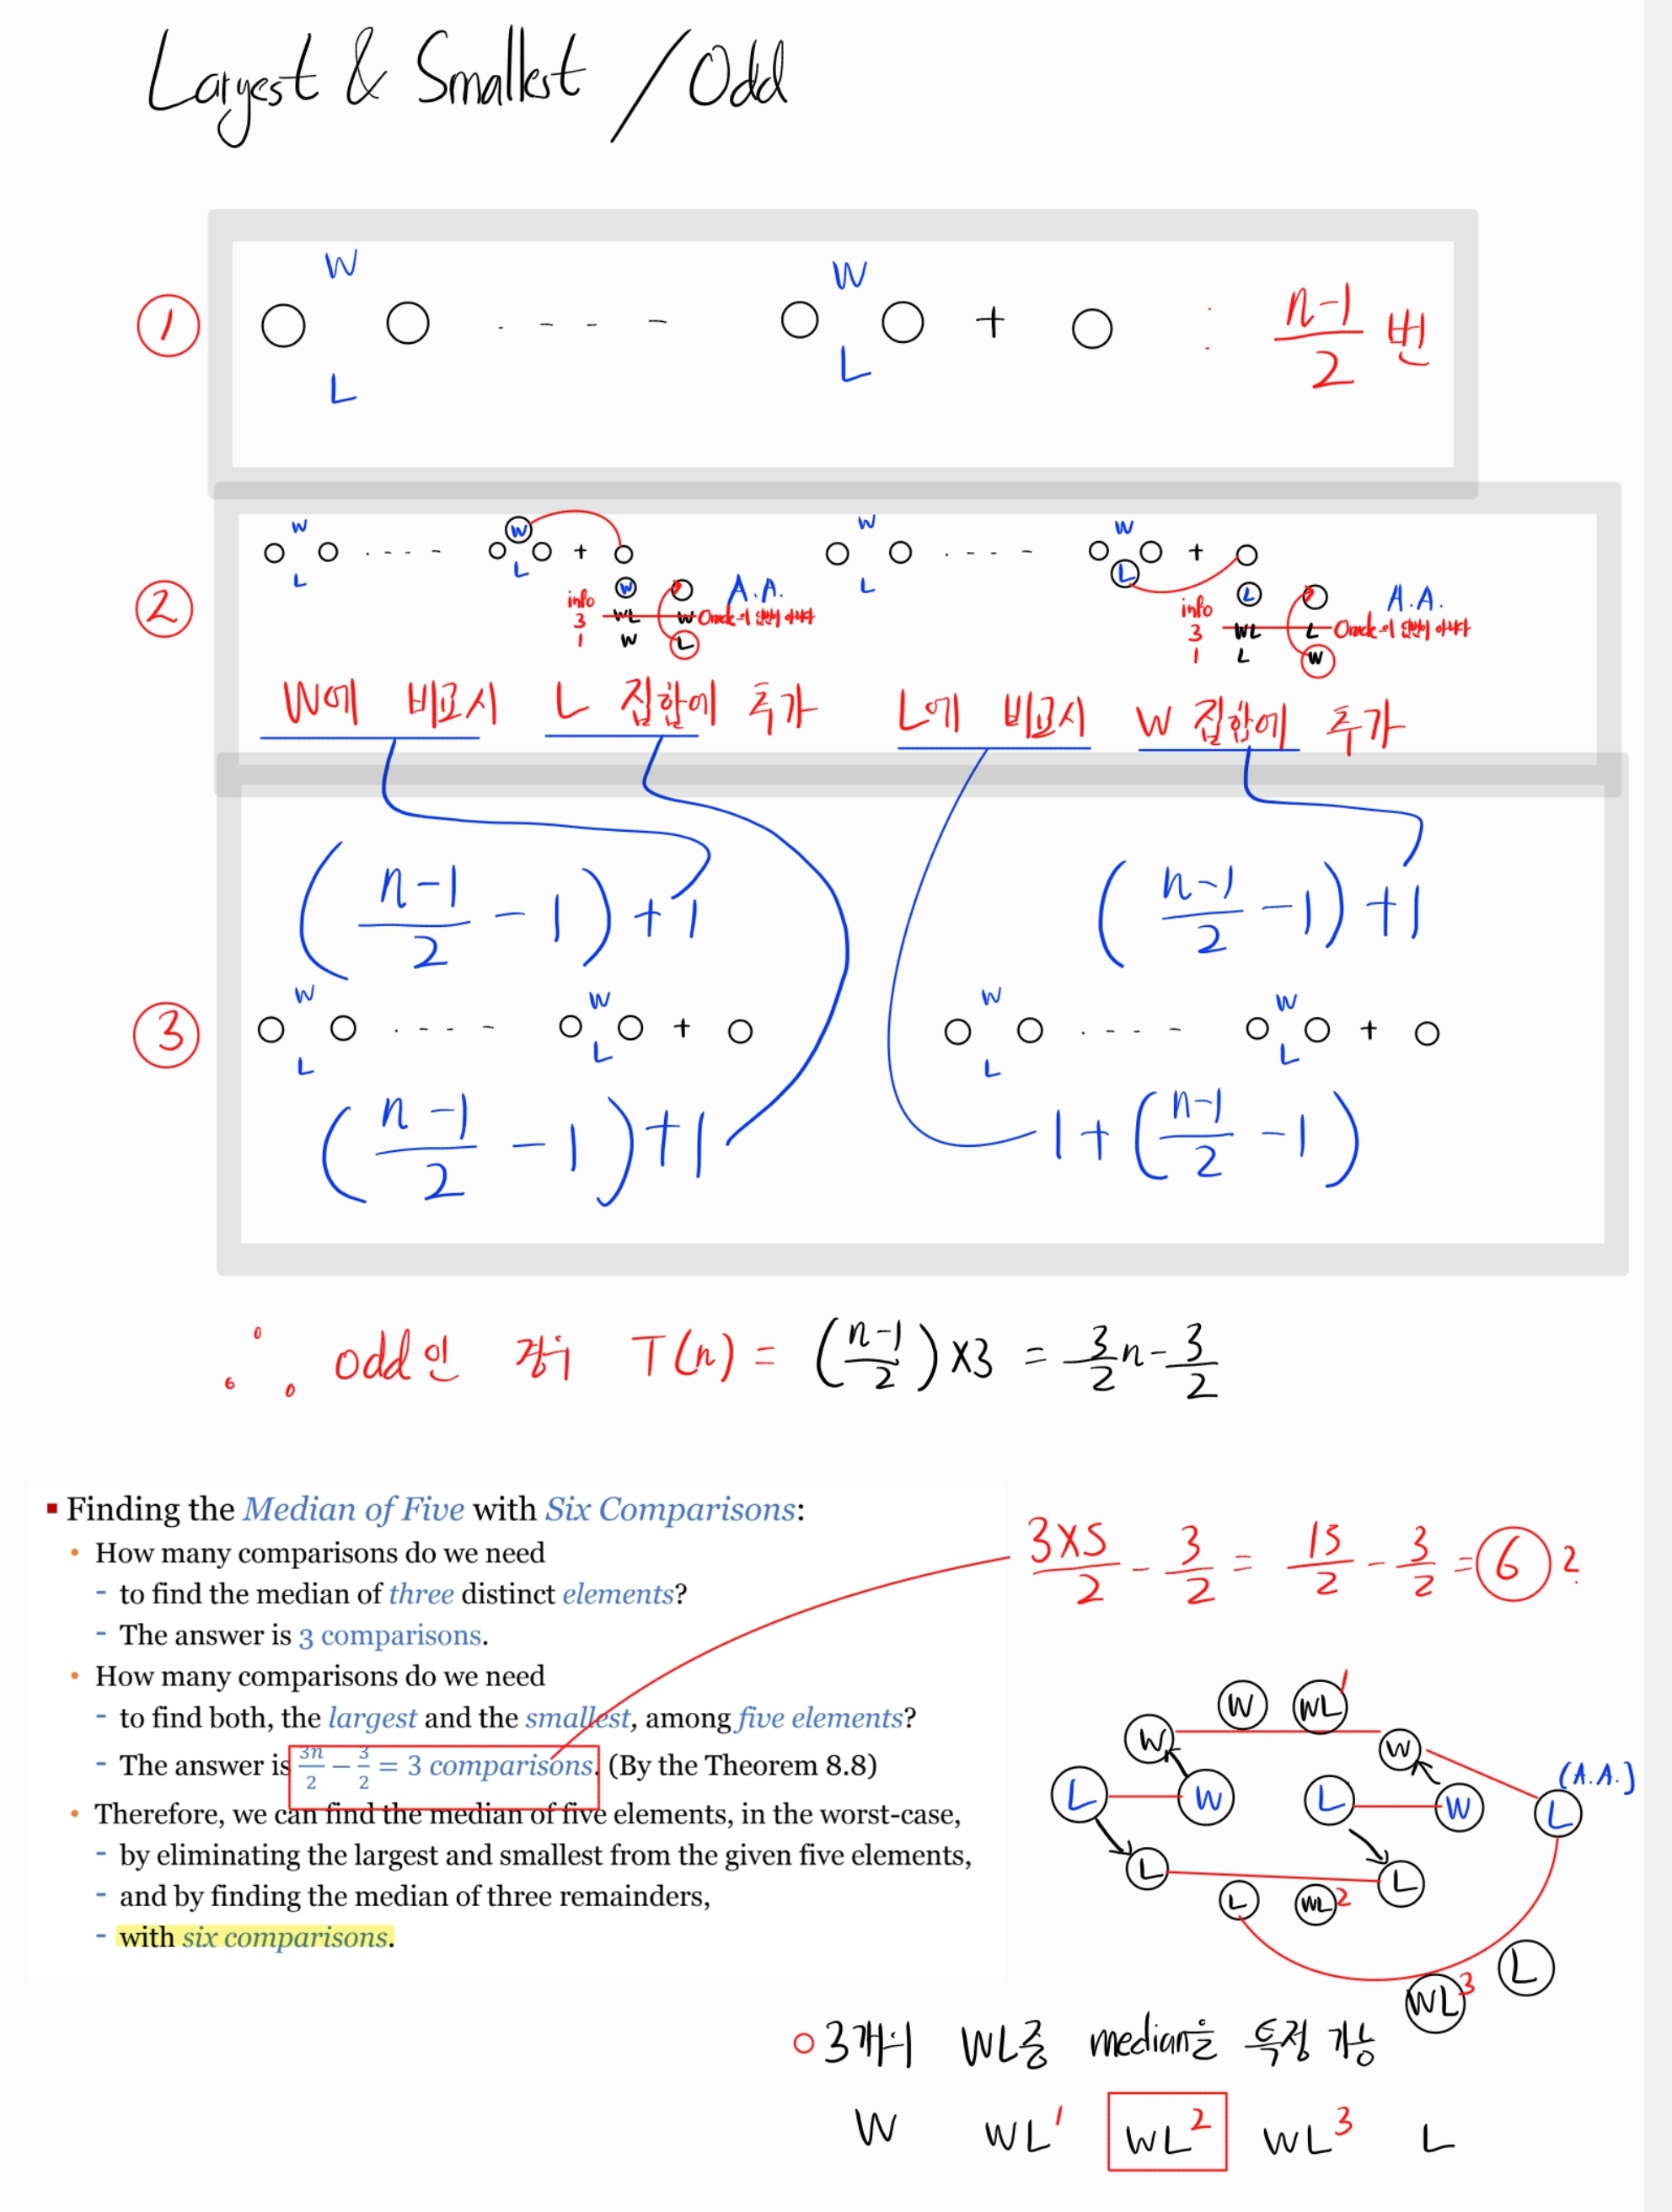 Largest & Smallest / Odd
① W L ---- W L + : n-1/2 번
② W L ---- W L + W L ---- W L +
info Ⓦ A.A. info Ⓛ A.A.
3 WL W Oracle의 답변이 아니다 3 WL L Oracle의 답변이 아니다
1 W L 1 L W
W에 비교시 L 집합에 추가 L에 비교시 W 집합에 추가
(n-1/2 - 1) + 1 (n-1/2 - 1) + 1
③ W L ---- W L + W L ---- W L +
(n-1/2 - 1) + 1 1 + (n-1/2 - 1)
∴ odd인 경우 T(n) = (n-1/2) × 3 = 3/2 n - 3/2
▪ Finding the Median of Five with Six Comparisons:
• How many comparisons do we need
- to find the median of three distinct elements?
- The answer is 3 comparisons.
• How many comparisons do we need
- to find both, the largest and the smallest, among five elements?
- The answer is 3n/2 − 3/2 = 3 comparisons. (By the Theorem 8.8)
• Therefore, we can find the median of five elements, in the worst-case,
- by eliminating the largest and smallest from the given five elements,
- and by finding the median of three remainders,
- with six comparisons.
3×5/2 - 3/2 = 15/2 - 3/2 = 6 ?
W WL 1
W W
(A.A.)
L W L W L
L L
L WL 2
L
WL 3
○ 3개의 WL중 median을 특정 가능
W WL1 WL2 WL3 L